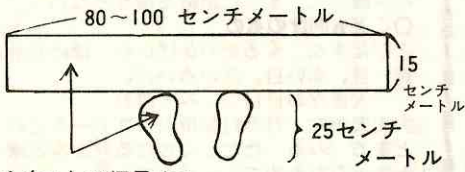 80〜100 センチメートル
15
センチ
メートル
25センチ
メートル